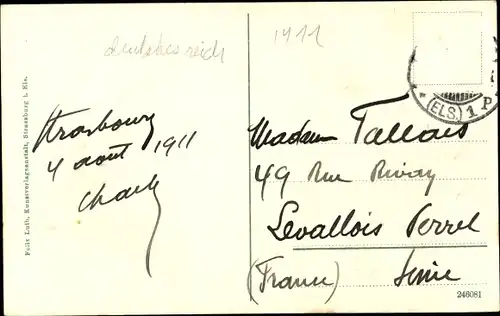 deutsches reich
1911
(ELS.) 1 P
Strasbourg
4 août 1911
Charles
Madame Tallois
49 Rue Rivay
Levallois Perret
(France) Seine
Felix Luib, Kunstverlagsanstalt, Strassburg i. Els.
246081